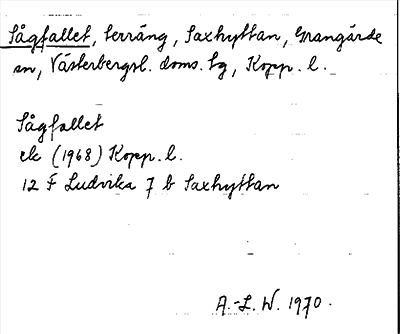 Sågfallet, terräng, Saxhyttan, Grangärde
sn, Västerbergsl. doms. tg, Kopp. l.
Sågfallet
ek (1968) Kopp. l.
12 F Ludvika 7 b Saxhyttan
A.-L. W. 1970.